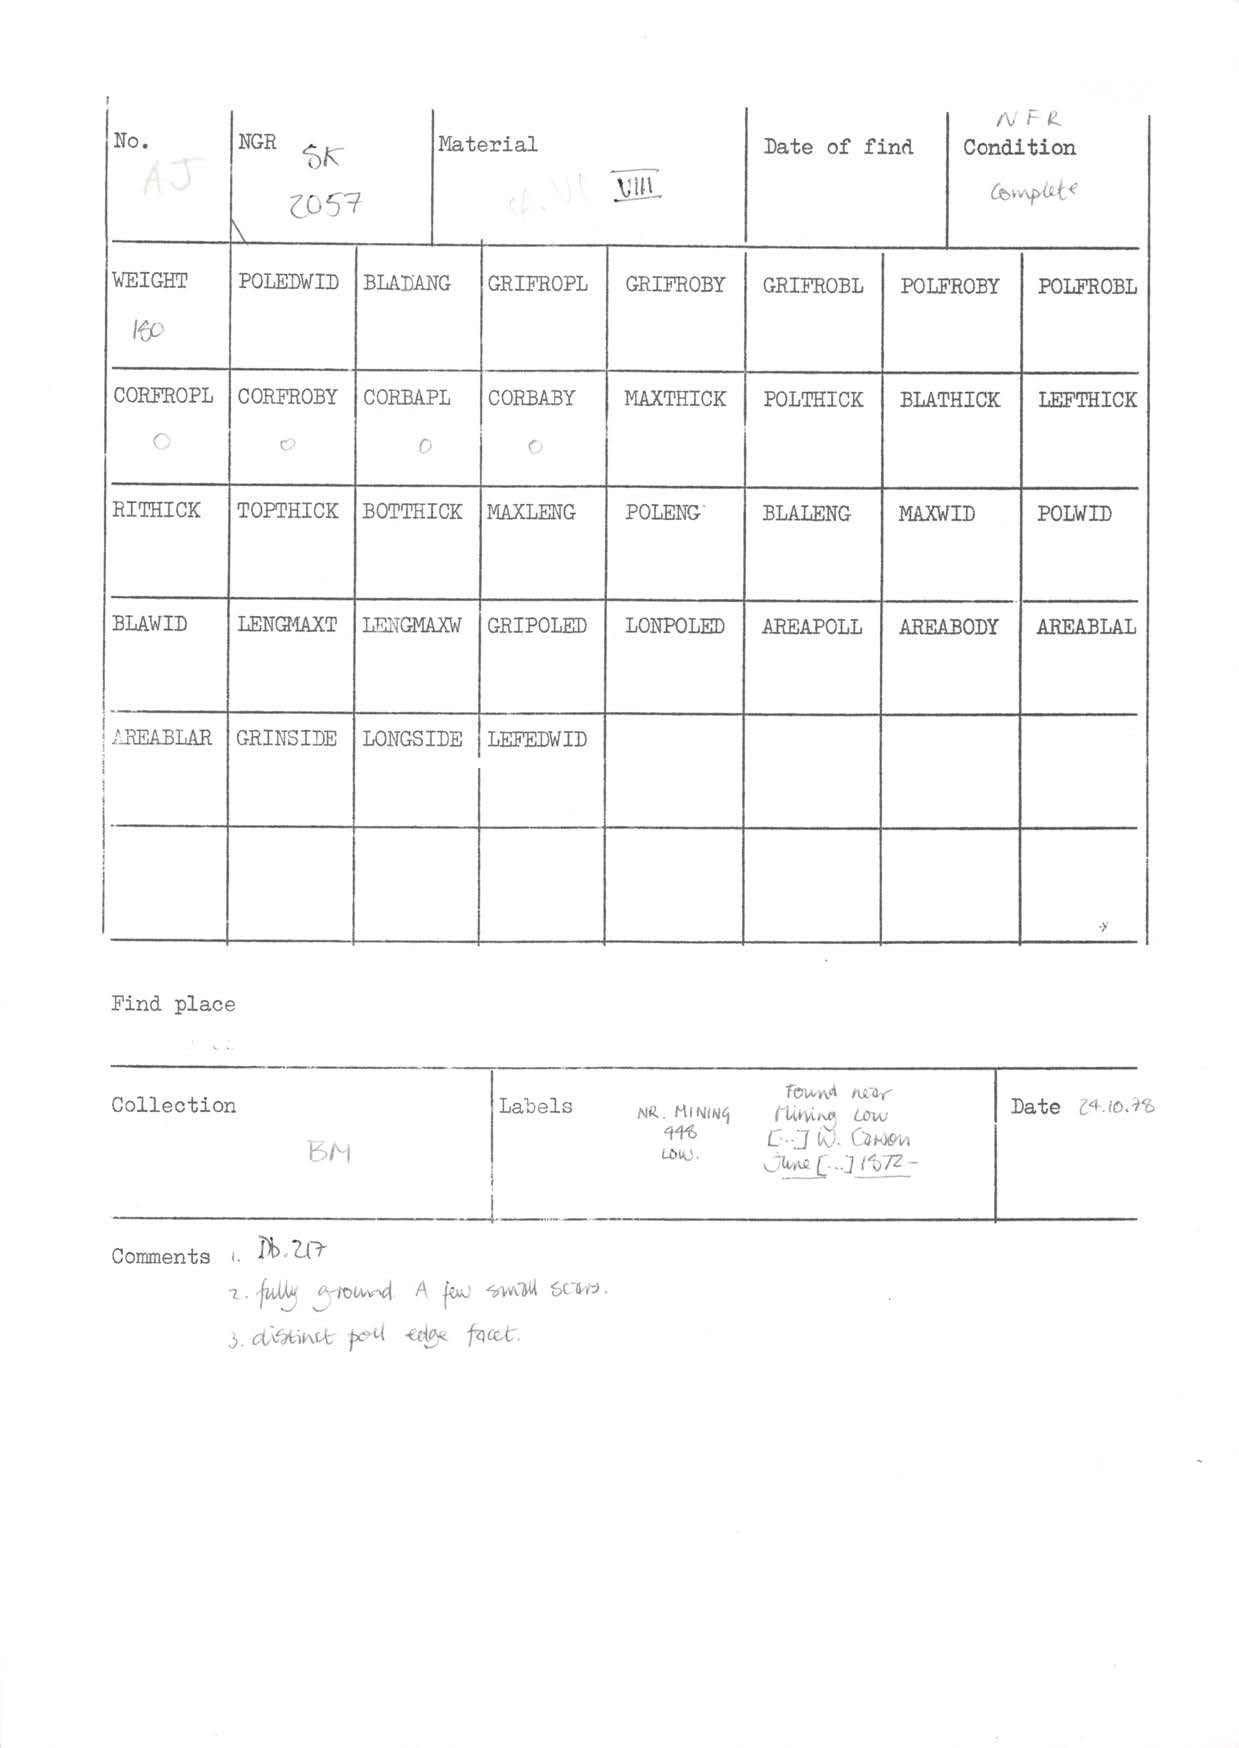 NFR
No. NGR Material Date of find Condition
AJ SK VIII Complete
2057
WEIGHT POLEDWID BLADANG GRIFROPL GRIFROBY GRIFROBL POLFROBY POLFROBL
180
CORFROPL CORFROBY CORBAPL CORBABY MAXTHICK POLTHICK BLATHICK LEFTHICK
0 0 0 0
RITHICK TOPTHICK BOTTHICK MAXLENG POLENG BLALENG MAXWID POLWID
BLAWID LENGMAXT LENGMAXW GRIPOLED LONPOLED AREAPOLL AREABODY AREABLAL
AREABLAR GRINSIDE LONGSIDE LEFEDWID
Find place
Collection
BM
Labels
NR. MINING
448
LOW.
Found near
Mining Low
[...] W. 
June [...] 1872-
Date 24.10.78
Comments 1. Db.217
2. fully ground A few small scars.
3. distinct poll edge facet.